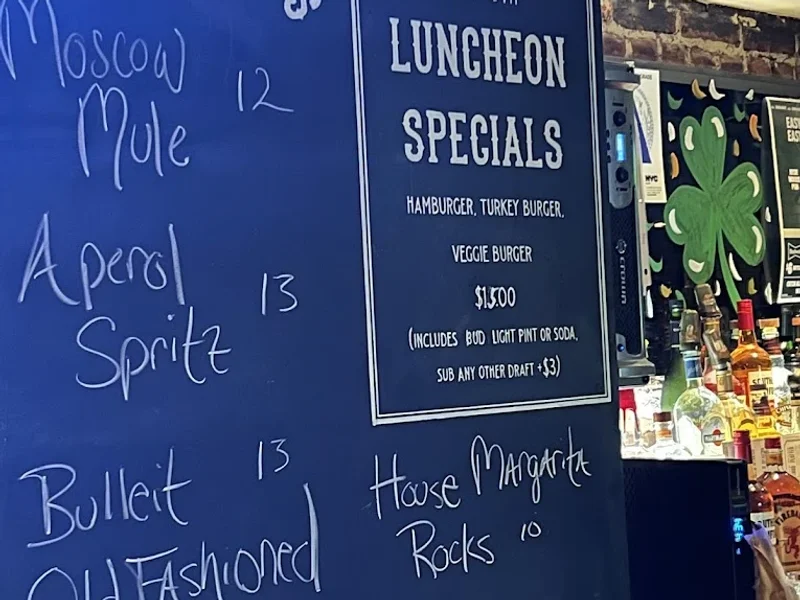 Moscow
Mule 12
Aperol
Spritz 13
Bulleit 13
Old Fashioned
LUNCHEON
SPECIALS
HAMBURGER, TURKEY BURGER,
VEGGIE BURGER
(INCLUDES BUD LIGHT PINT OR SODA,
SUB ANY OTHER DRAFT +$3)
House Margarita
Rocks 10
crown
NYC